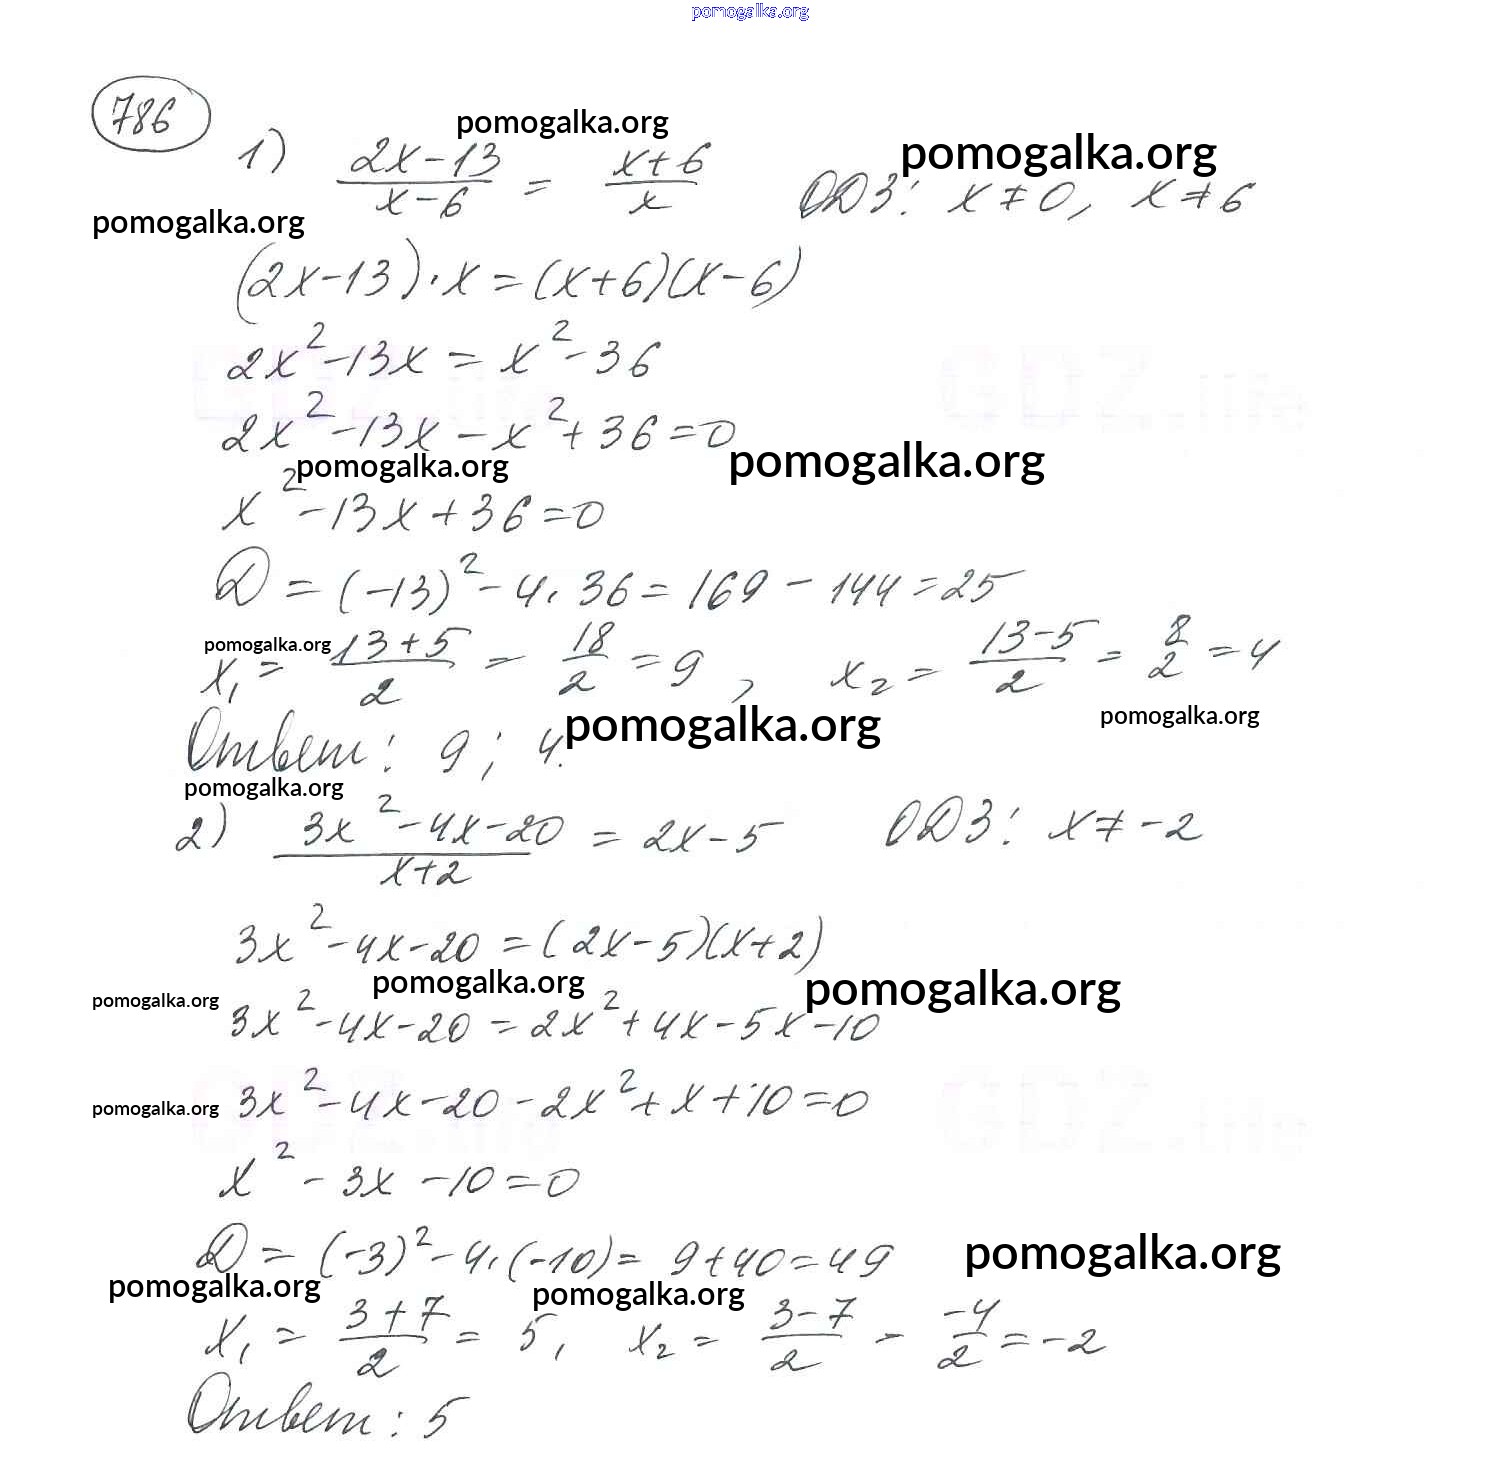 pomogalka.org
786
pomogalka.org
1) (2x-13)/(x-6) = (x+6)/x ОДЗ: x≠0, x≠6
pomogalka.org
pomogalka.org
(2x-13)·x=(x+6)(x-6)
2x²-13x=x²-36
GDZ.life GDZ.life
2x²-13x-x²+36=0
pomogalka.org pomogalka.org
x²-13x+36=0
D=(-13)²-4·36=169-144=25
pomogalka.org
x₁=(13+5)/2=18/2=9, x₂=(13-5)/2=8/2=4
pomogalka.org pomogalka.org
Ответ: 9; 4.
pomogalka.org
2) (3x²-4x-20)/(x+2)=2x-5 ОДЗ: x≠-2
3x²-4x-20=(2x-5)(x+2)
pomogalka.org pomogalka.org
pomogalka.org
3x²-4x-20=2x²+4x-5x-10
pomogalka.org
3x²-4x-20-2x²+x+10=0
GDZ.life GDZ.life
x²-3x-10=0
D=(-3)²-4·(-10)=9+40=49
pomogalka.org
pomogalka.org pomogalka.org
x₁=(3+7)/2=5, x₂=(3-7)/2-(-4)/2=-2
Ответ: 5